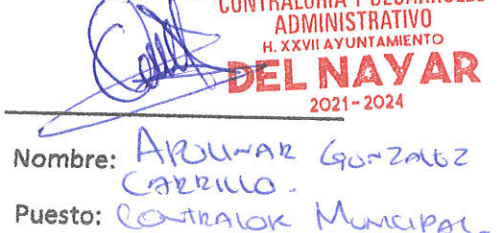 CONTRALORIA Y DESARROLLO
ADMINISTRATIVO
H. XXVII AYUNTAMIENTO
DEL NAYAR
2021-2024
Nombre: APOLINAR GONZALEZ
CARRILLO.
Puesto: CONTRALOR MUNICIPAL.